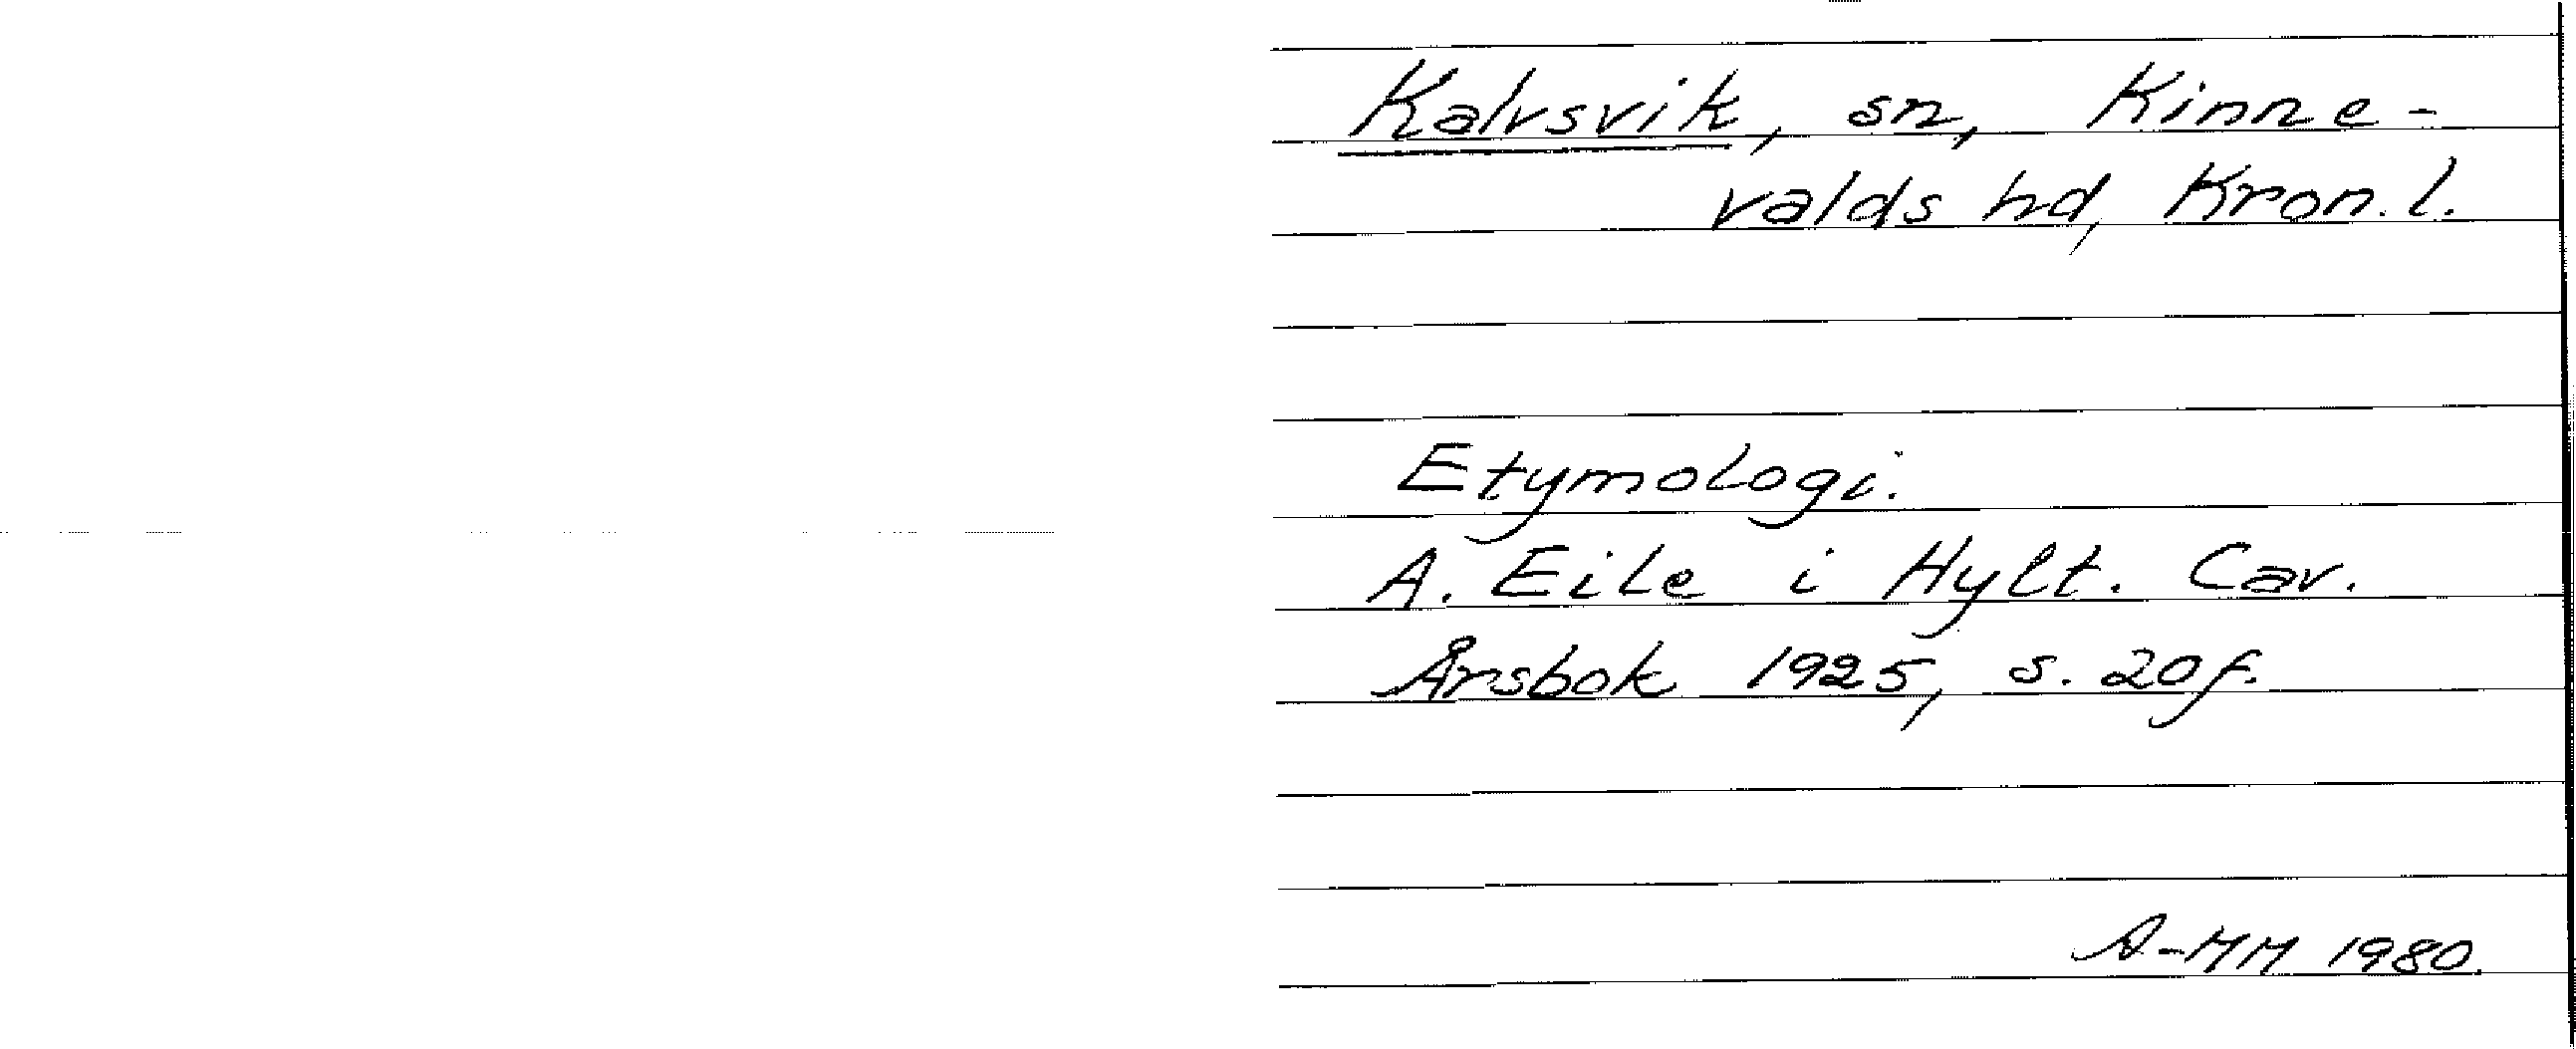 Kalvsvik, sn, Kinne-
valds hd, Kron. l.
Etymologi.
A. Eile i Hylt. Cav.
Årsbok 1925, s. 20 f.
A-MM 1980.